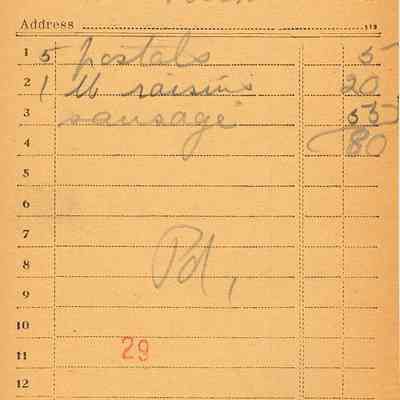 Address 19
1 5 postals 5
2 1 lb raisins 20
3 sausage 55
4 80
5
6
7
8 Pd,
9
10
11 29
12